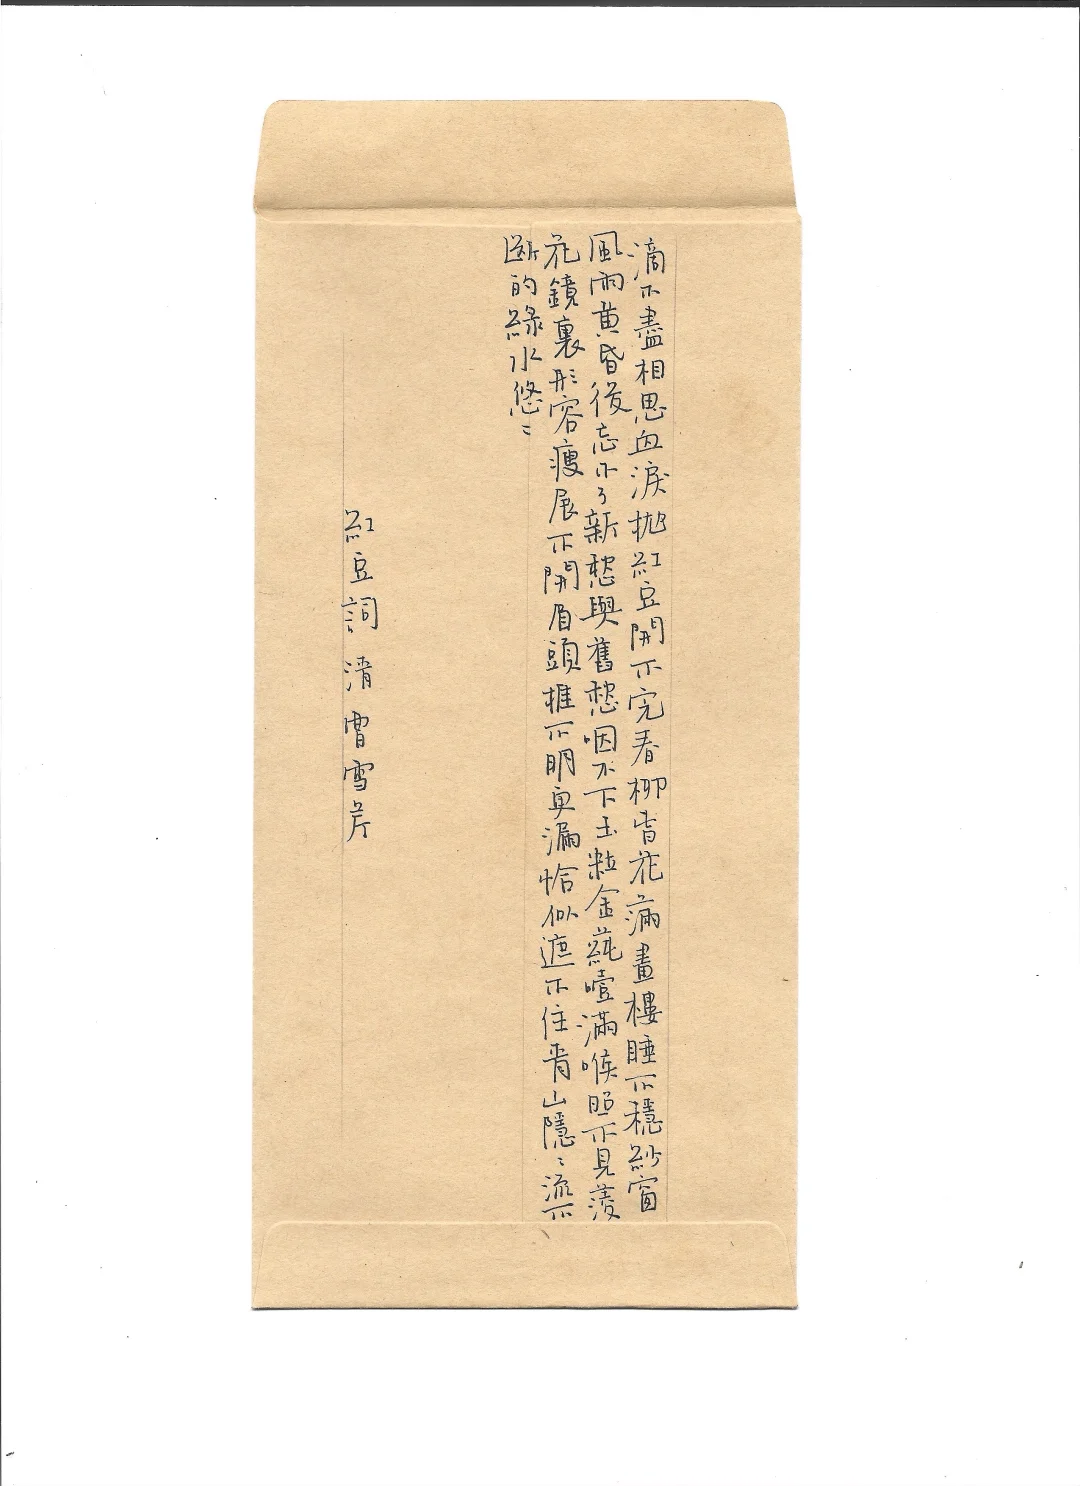 滴不盡相思血淚拋紅豆開不完春柳春花滿畫樓睡不穩紗窗
風雨黃昏後忘不了新愁與舊愁咽不下玉粒金蒓噎滿喉照不見菱
花鏡裏形容瘦展不開眉頭捱不明更漏恰似遮不住青山隱〻流不
斷的綠水悠〻
紅豆詞 清 曹雪芹